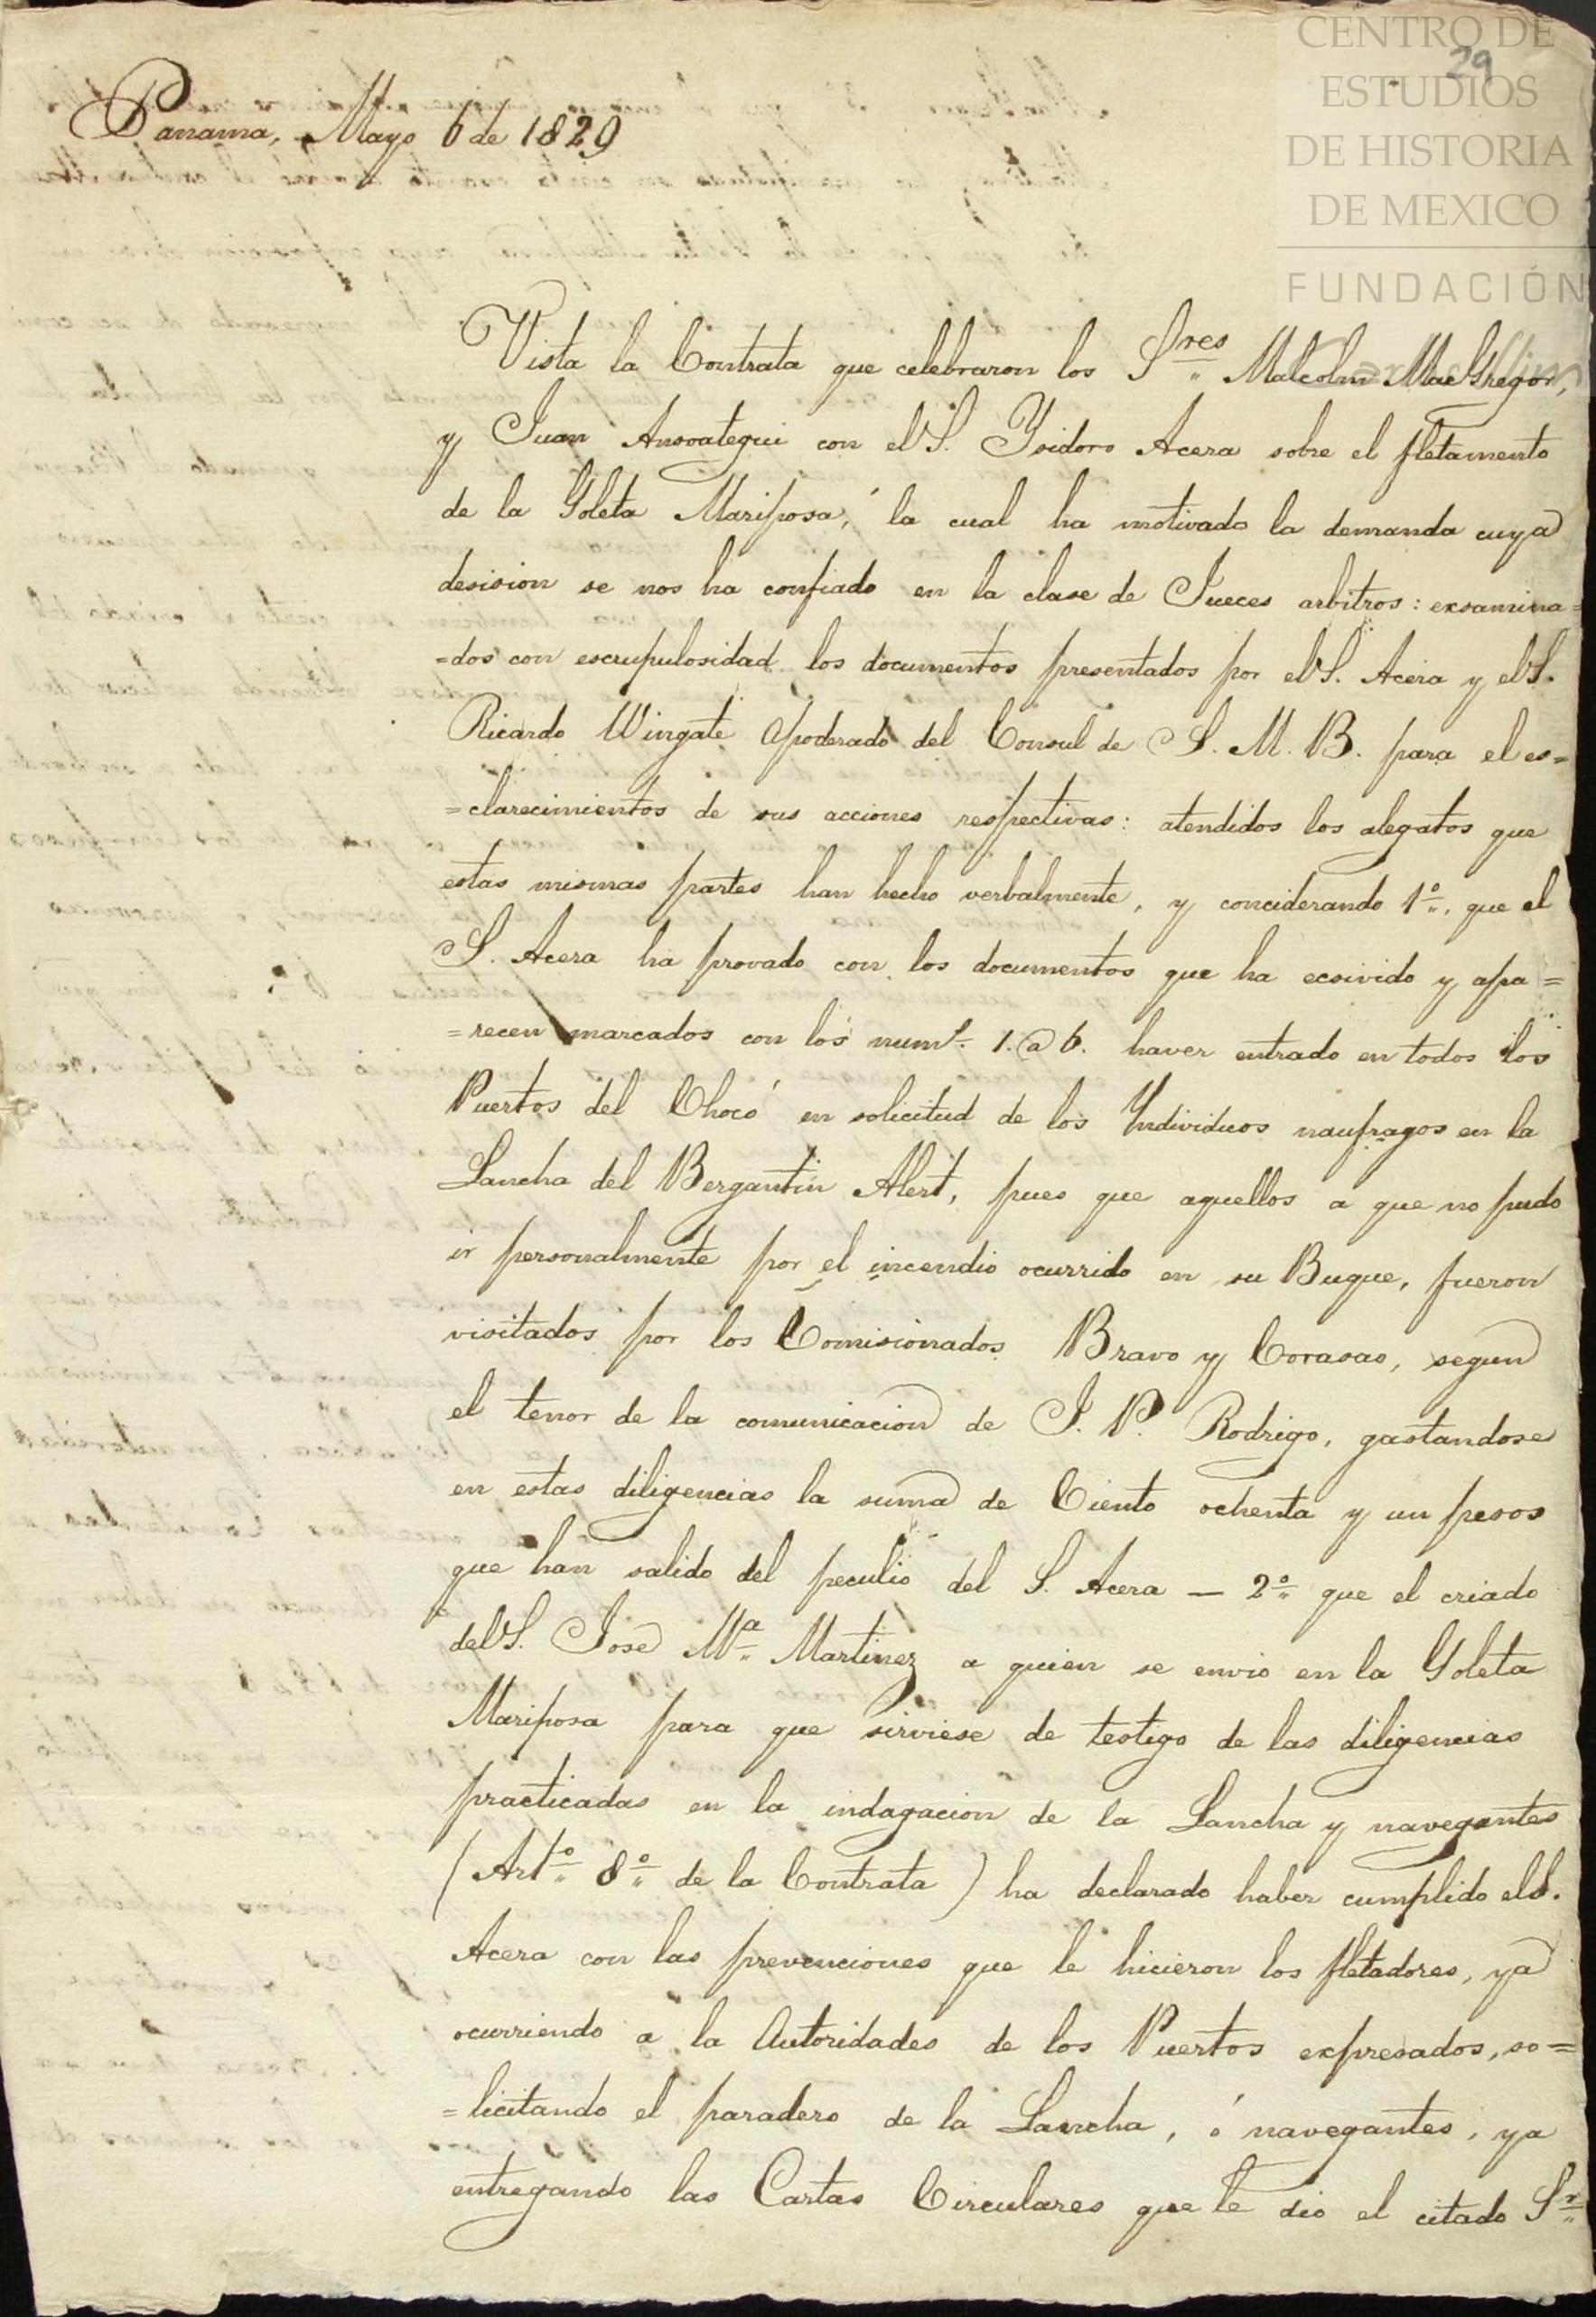 CENTRO DE
ESTUDIOS
DE HISTORIA
DE MEXICO
FUNDACIÓN
29
Panama, Mayo 6 de 1829
Vista la Contrata que celebraron los S.res Malcolm MacGregor,
y Juan Ansoategui con el S. Ysidoro Acera sobre el fletamento
de la Goleta Mariposa, la cual ha motivado la demanda cuya
desision se nos ha confiado en la clase de Jueces arbitros: exsamina=
=dos con escrupulosidad los documentos presentados por el S. Acera y el S.
Ricardo Wingate Apoderado del Consul de S. M. B. para el es=
=clarecimientos de sus acciones respectivas: atendidos los alegatos que
estas mismas partes han hecho verbalmente, y conciderando 1º, que el
S. Acera ha provado con los documentos que ha ecsivido y apa=
=recen marcados con los num.s 1. a 6. haver entrado en todos los
Puertos del Chocó en solicitud de los Yndividuos naufragos en la
Lancha del Bergantin Alert, pues que aquellos a que no pudo
ir personalmente por el incendio ocurrido en su Buque, fueron
visitados por los Comisionados Bravo y Corasao, segun
el tenor de la comunicacion de J. P. Rodrigo, gastandose
en estas diligencias la suma de Ciento ochenta y un pesos
que han salido del peculio del S. Acera — 2º que el criado
del S. José M.a Martinez a quien se envio en la Goleta
Mariposa para que sirviese de testigo de las diligencias
practicadas en la indagacion de la Lancha y navegantes
(Art.o 8º de la Contrata) ha declarado haber cumplido el S.
Acera con las prevenciones que le hicieron los fletadores, ya
ocurriendo a la Autoridades de los Puertos expresados, so=
=licitando el paradero de la Lancha, ó navegantes, ya
entregando las Cartas Circulares que le dio el citado S.r